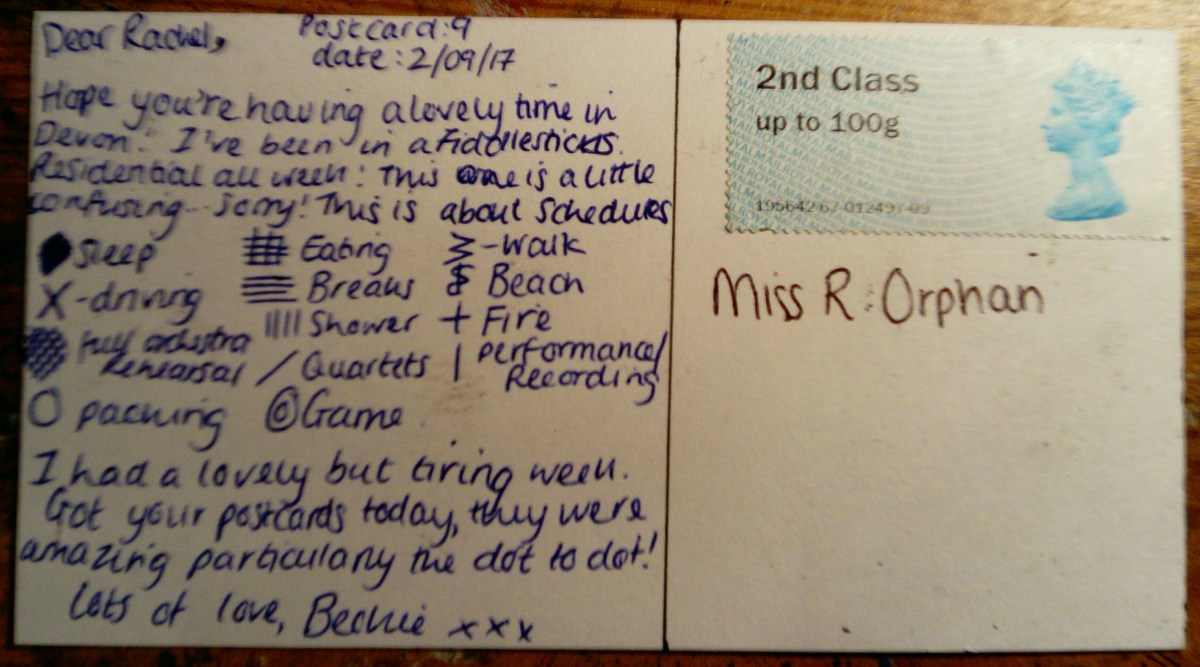 Dear Rachel, Postcard: 9
date: 2/09/17
Hope you're having a lovely time in
Devon! I've been in a Fiddlesticks
Residential all week! This one is a little
confusing... sorry! This is about schedules
Sleep Eating - Walk
X - driving Breaks $ Beach
|||| Shower + Fire
full orchestra / Quartets | performance/
Rehearsal Recording
O packing © Game
I had a lovely but tiring week.
Got your postcards today, they were
amazing particularly the dot to dot!
Lots of love, Bechie xxx
2nd Class
up to 100g
195642 67-012497-09
Miss R. Orphan